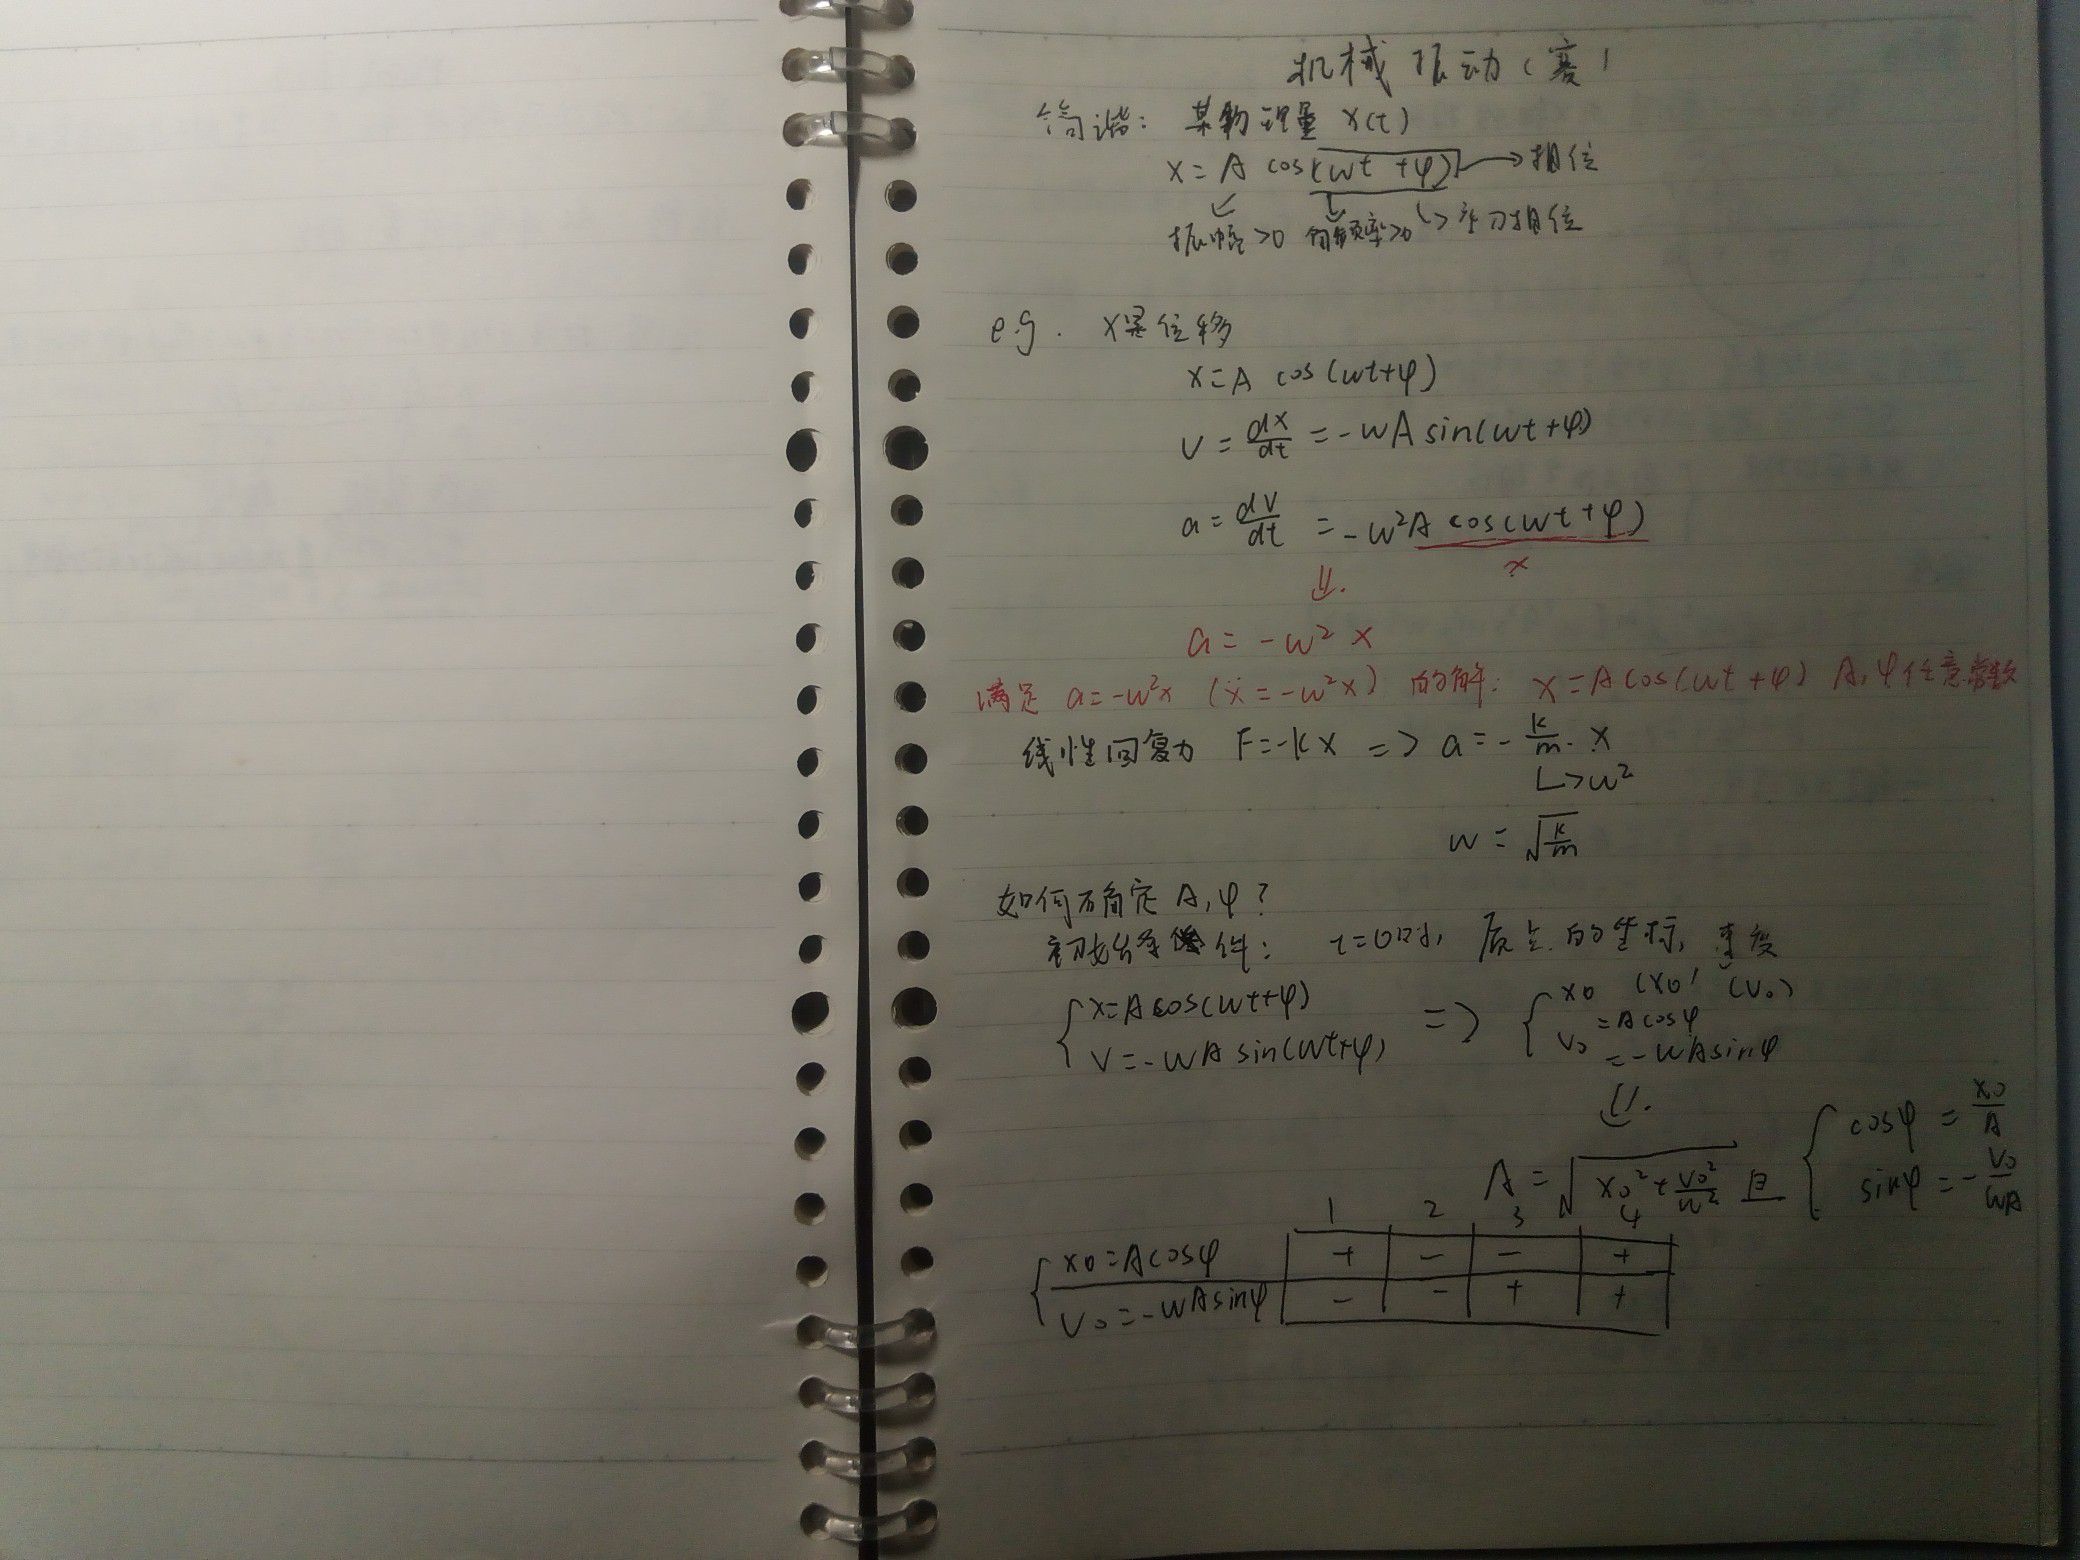 机械振动（赛）
简谐：某物理量 x(t)
x = A cos(ωt + φ) → 相位
振幅>0 角频率>0 ↳ 初相位
e.g. x是位移
x = A cos(ωt+φ)
v = dx/dt = -ωA sin(ωt+φ)
a = dv/dt = -ω²A cos(ωt+φ)
⇓ x
a = -ω² x
满足 a=-ω²x (ẍ=-ω²x) 的解：x=A cos(ωt+φ) A,φ任意常数
线性回复力 F=-kx => a = -k/m · x
↳ ω²
ω = √(k/m)
如何确定 A,φ?
初始条件：t=0时，质点的坐标，速度
(x0) (v0)
{ x=A cos(ωt+φ) => { x0 = A cosφ
v=-ωA sin(ωt+φ) v0 = -ωA sinφ
⇓
A = √(x0² + v0²/ω²) 且 { cosφ = x0/A
sinφ = -v0/ωA
1 2 3 4
{ x0 = A cosφ + - - +
v0 = -ωA sinφ - - + +